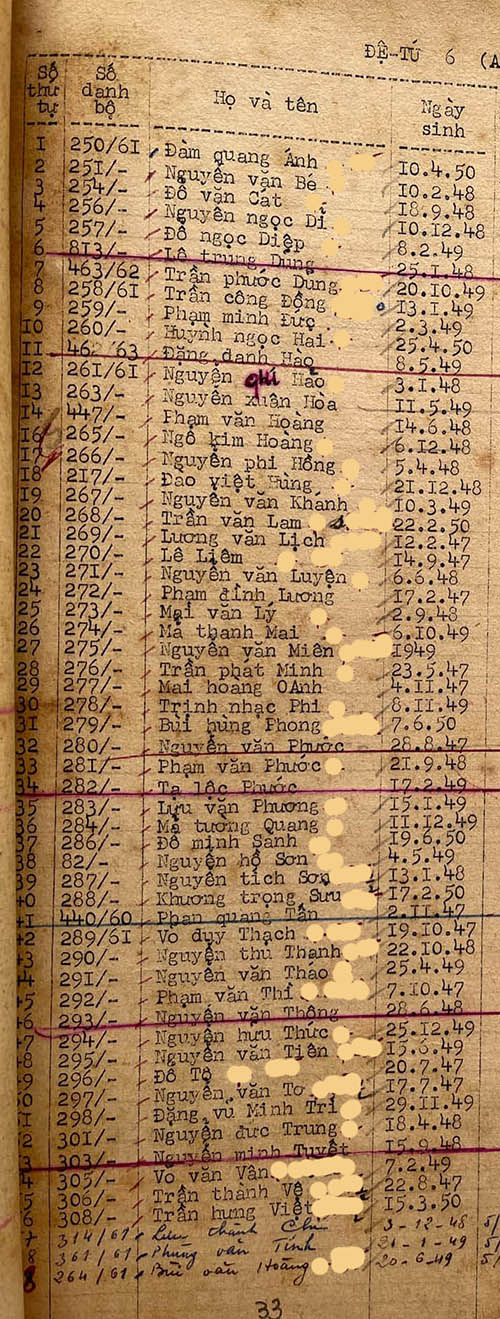 ĐỆ-TỨ 6 (A
Số thứ tự Số danh bộ Họ và tên Ngày sinh
I 250/6I Đàm quang Ánh 10.4.50
2 25I/- Nguyễn văn Bé 10.2.48
3 254/- Đỗ văn Cát 18.9.48
4 256/- Nguyễn ngọc Di 10.12.48
5 257/- Đỗ ngọc Diệp 8.2.49
6 813/- Lê trung Dung 25.I.48
7 463/62 Trần phước Dung 20.10.49
8 258/6I Trần công Đồng I3.I.49
9 259/- Phạm minh Đức 2.3.49
IO 260/- Huỳnh ngọc Hai 25.4.50
II 462/63 Đặng danh Hào 8.5.49
I2 26I/6I Nguyễn quí Hảo 3.I.48
I3 263/- Nguyễn xuân Hòa II.5.49
I4 447/- Phạm văn Hoàng I4.6.48
I6 265/- Ngô kim Hoàng 6.I2.48
I7 266/- Nguyễn phi Hồng 5.4.48
I8 2I7/- Đào việt Hùng 2I.I2.48
I9 267/- Nguyễn văn Khánh I0.3.49
20 268/- Trần văn Lam 22.2.50
2I 269/- Lương văn Lịch I2.2.47
22 270/- Lê Liêm I4.9.47
23 27I/- Nguyễn văn Luyện 6.6.48
24 272/- Phạm đình Lương I7.2.47
25 273/- Mai văn Lý 2.9.48
26 274/- Mã thanh Mai 6.I0.49
27 275/- Nguyễn văn Miên I949
28 276/- Trần phát Minh 23.5.47
29 277/- Mai hoàng OAnh 4.II.47
30 278/- Trịnh nhạc Phi 8.II.49
3I 279/- Bùi hùng Phong 7.6.50
32 280/- Nguyễn văn Phước 28.8.47
33 28I/- Phạm văn Phước 2I.9.48
34 282/- Tạ lộc Phước I7.2.49
35 283/- Lưu văn Phương I5.I.49
36 284/- Mã tương Quang II.I2.49
37 286/- Đỗ minh Sanh I9.6.50
38 82/- Nguyễn hồ Sơn 4.5.49
39 287/- Nguyễn tích Sơn I3.I.48
40 288/- Khương trọng Sưu I7.2.50
4I 440/60 Phan quang Tấn 2.II.47
42 289/6I Vo duy Thạch I9.I0.47
43 290/- Nguyễn thu Thanh 22.I0.48
44 29I/- Nguyễn văn Thao 25.4.49
45 292/- Phạm văn Thi 7.I0.47
46 293/- Nguyễn văn Thông 28.6.48
47 294/- Nguyễn hưu Thức 25.I2.49
48 295/- Nguyễn văn Tiên I5.6.49
49 296/- Đỗ Tộ 20.7.47
50 297/- Nguyễn văn Tơ I7.7.47
5I 298/- Đặng vũ Minh Trí 29.II.49
52 30I/- Nguyễn đức Trung I8.4.48
53 303/- Nguyễn minh Tuyết I5.9.48
54 305/- Vo văn Vân 7.2.49
55 306/- Trần thành Vệ 22.8.47
56 308/- Trần hưng Việt I5.3.50
7 314/61 Lưu thành Chi 3-12-48 5/
8 361/61 Phùng văn Tính 21-1-49 5/
264/61 Bùi văn Hoàng 20-6-49 5/
33